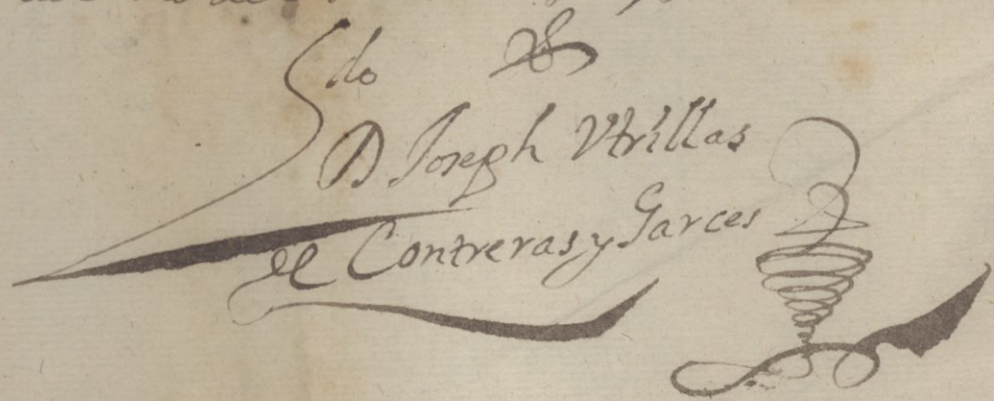 do &
D Joseph Vtrillas
de Contreras y Garces